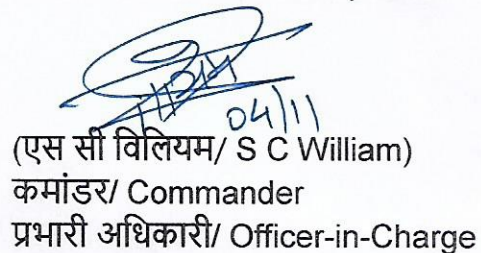 04/11
(एस सी विलियम/ S C William)
कमांडर/ Commander
प्रभारी अधिकारी/ Officer-in-Charge